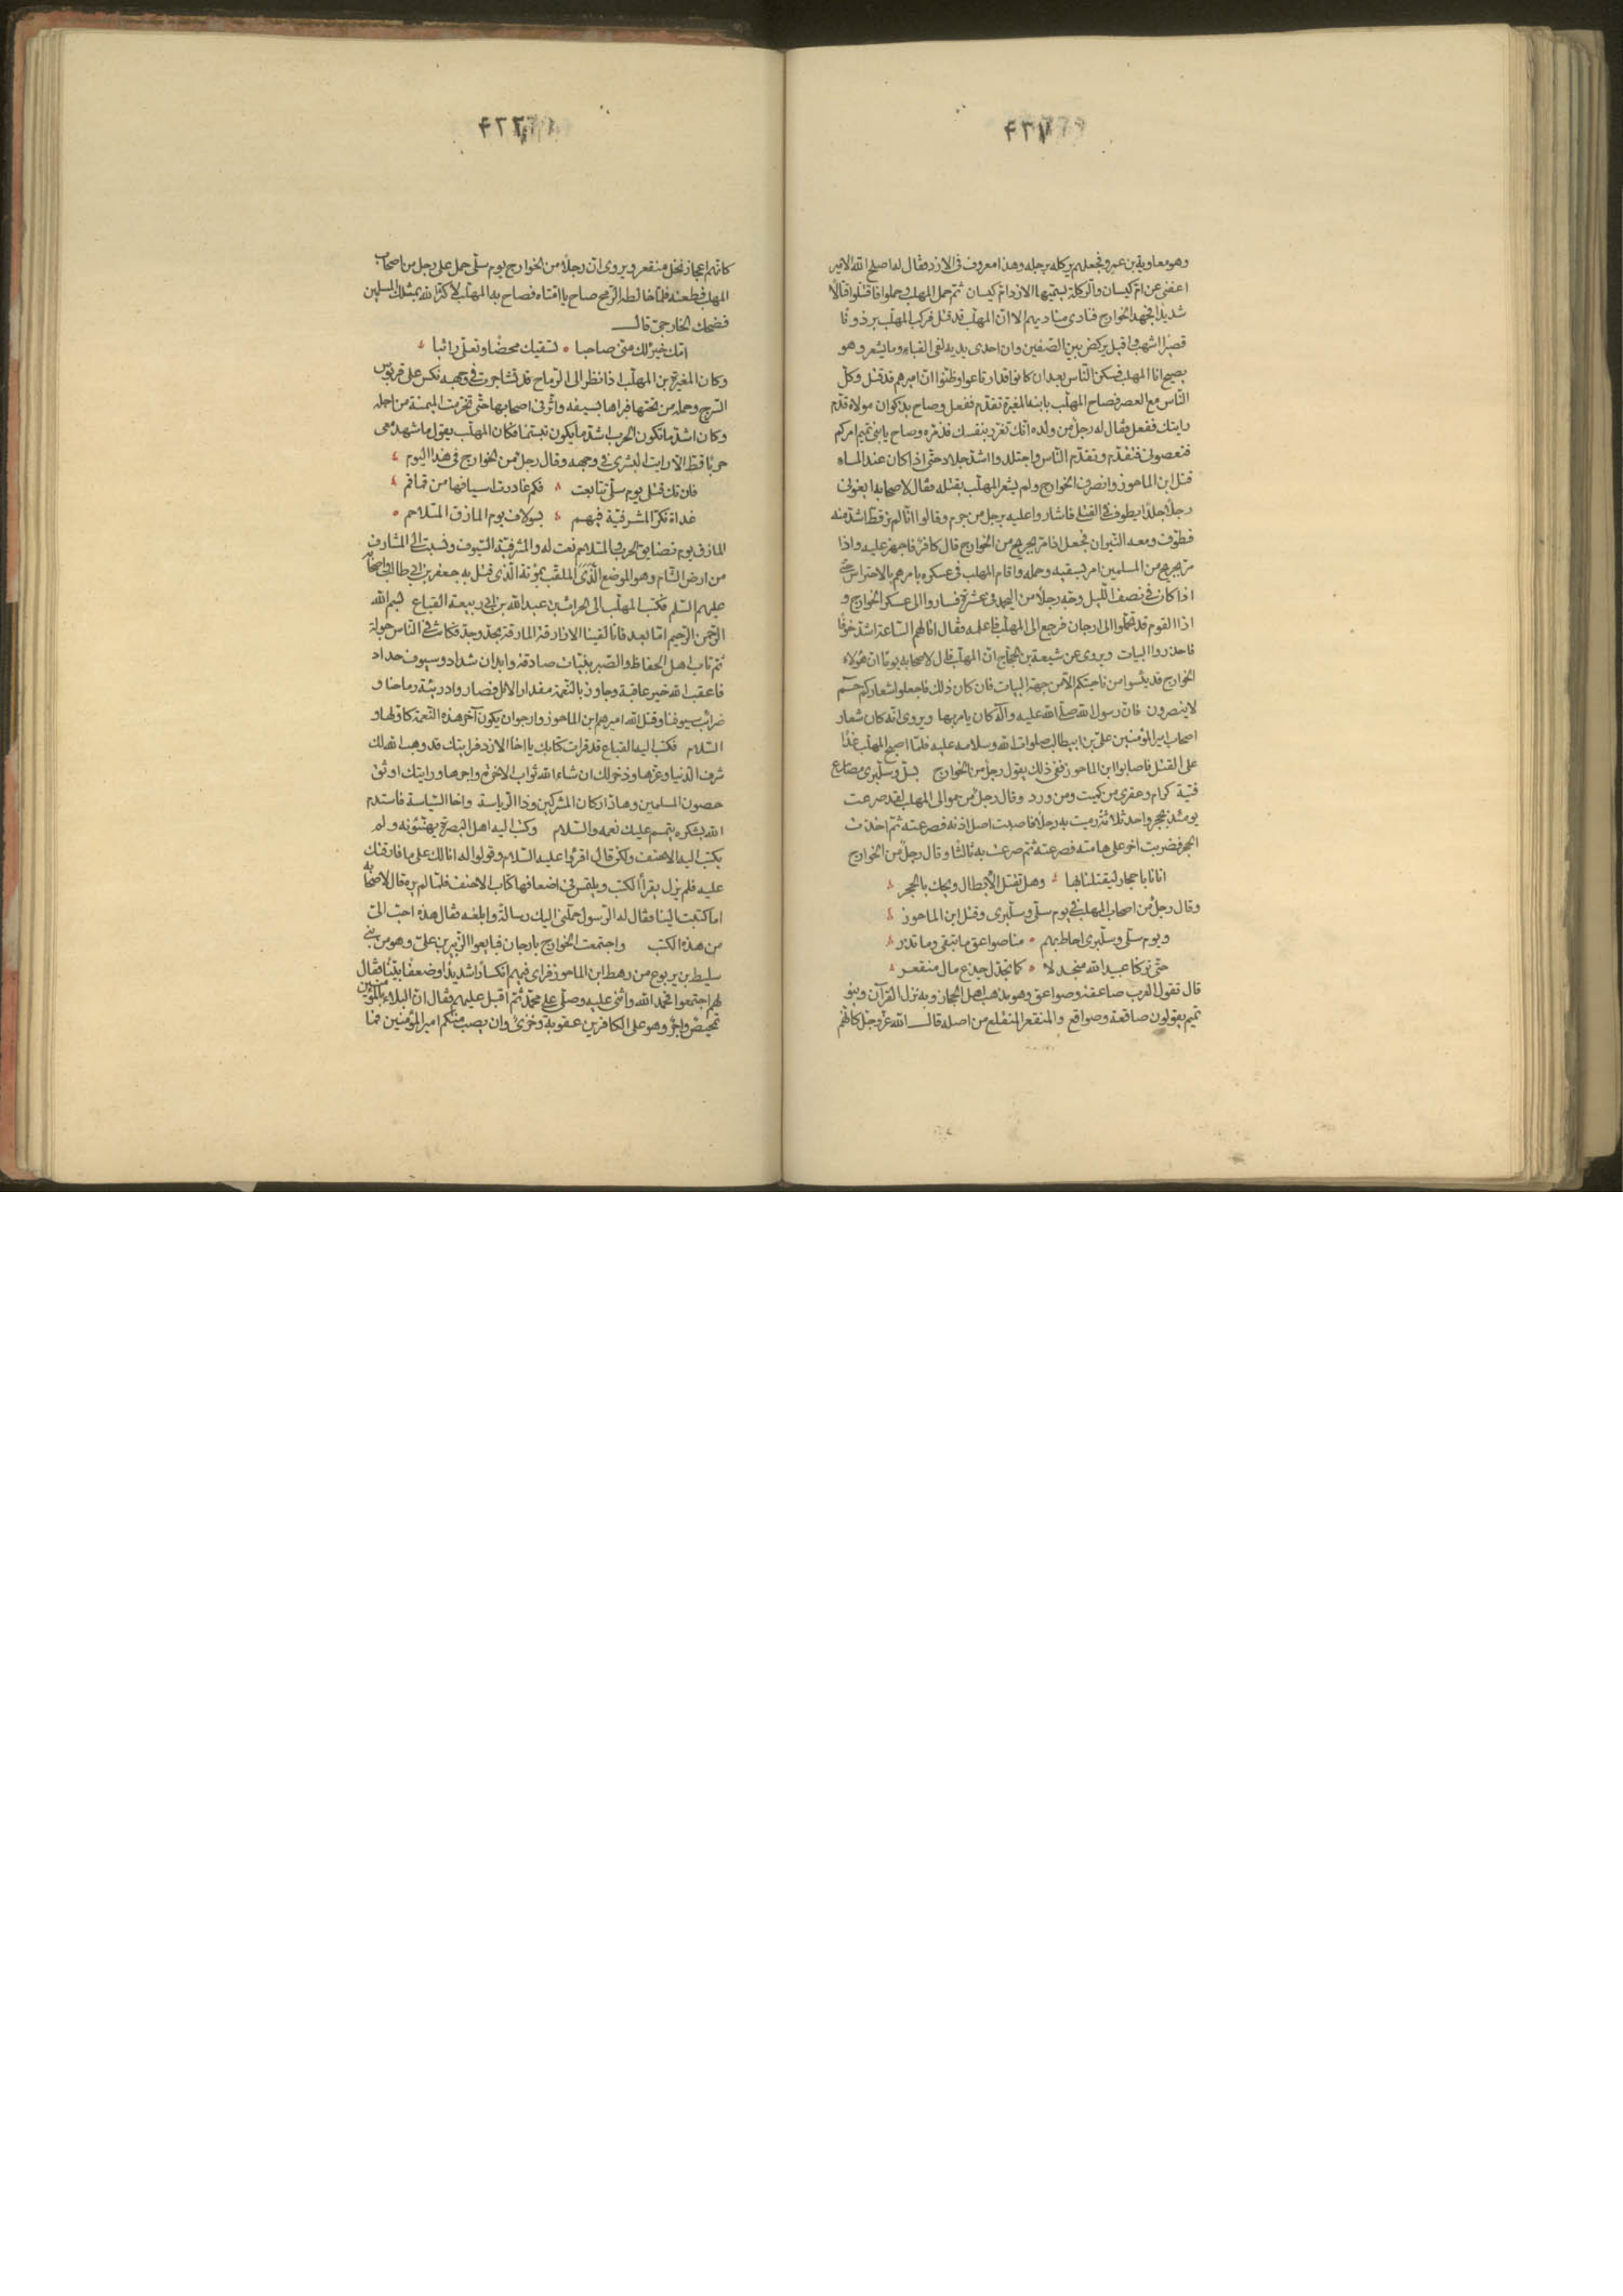 ٤٣٧
وهو معاوية بن عمرو فجعلهم يركله برجله وهذا معروف فى الازد فقال له اصلح الله الامير
اعفنى عن ام كيسان والركلة تسميها الازد ام كيسان ثم حمل المهلب وحملوا فاقتتلوا قتالا
شديدا فجهد الخوارج فنادى مناديهم الا ان المهلب قد قتل فركب المهلب برذونا
قصيرا اشهب واقبل يركض بين الصفين وان احدى يديه لفى القباء وما يشعر وهو
يصيح انا المهلب فسكن الناس بعد ان كانوا قد ارتاعوا وظنوا ان اميرهم قد قتل وكلّ
الناس مع العصر فصاح المهلب بابنه المغيرة تقدم ففعل وصاح بذكوان مولاه قدم
رايتك ففعل فقال له رجل من ولده انك تغرر بنفسك فذمره وصاح يا بنى تميم امركم
فتعصونى فتقدم وتقدم الناس واجتلدوا اشد جلاد حتى اذا كان عند المساء
قتل ابن الماحوز وانصرف الخوارج ولم يشعر المهلب بقتله فقال لاصحابه ابغونى
رجلا جلدا يطوف فى القتلى فاشاروا عليه برجل من جرم وقالوا انا لم نر قط اشد منه
فطوف ومعه النيران فجعل اذا مر بجريح من الخوارج قال كافر فاجهز عليه واذا
مر بجريح من المسلمين امر بسقيه وحمله واقام المهلب فى عسكره يامرهم بالاحتراس حتى
اذا كان فى نصف الليل وجّه رجلا من اليحمد فى عشرة فساروا الى عسكر الخوارج و
اذا القوم قد تحملوا الى ارجان فرجع الى المهلب فاعلمه فقال انا لهم الساعة اشد خوفا
فاحذروا البيات ويروى عن شعبة بن الحجاج ان المهلب قال لاصحابه يوما ان هؤلاء
الخوارج قد يئسوا من ناحيتكم الا من جهة البيات فان كان ذلك فاجعلوا شعاركم حم
لا ينصرون فان رسول الله صلى الله عليه وآله كان يامر بها ويروى انه كان شعار
اصحاب امير المؤمنين على بن ابيطالب صلوات الله وسلامه عليه فلما اصبح المهلب غدا
على القتلى فاصابوا ابن الماحوز ففى ذلك يقول رجل من الخوارج بسلّى وسلّبرى مصارع
فتية كرام وعقرى من كميت ومن ورد وقال رجل من موالى المهلب لقد صرعت
يومئذ بحجر واحد ثلاثة رميت به رجلا فاصبت اصل اذنه فصرعته ثم اخذت
الحجر فضربت آخر على هامته فصرعته ثم صرعت به ثالثا وقال رجل من الخوارج
اتانا باحجار ليقتلنا بها وهل تقتل الابطال ويحك بالحجر
وقال رجل من اصحاب المهلب فى يوم سلّى وسلّبرى وقتل ابن الماحوز
ويوم سلّى وسلّبرى احاط بهم منا صواعق ما تبقى وما تذر
حتى تركنا عبيد الله منجدلا كما تجدل جذع مال منقعر
قال تقول العرب صاعقة وصواعق وهو مذهب اهل الحجاز وبه نزل القرآن وبنو
تميم يقولون صاقعة وصواقع والمنقعر المنقلع من اصله قال الله عز وجل كانهم
كانهم اعجاز نخل منقعر ويروى ان رجلا من الخوارج يوم سلّى حمل على رجل من اصحاب
المهلب فطعنه فلما خالطه الرمح صاح يا امتاه فصاح به المهلب لا كثر الله بمثلك المسلمين
فضحك الخارجى وقال
امك خير لك منى صاحبا تسقيك محضا وتعل رائبا
وكان المغيرة بن المهلب اذا نظر الى الرماح قد تشاجرت فى وجهه نكس على قربوس
السرج وحمل من تحتها فبراها بسيفه واثر فى اصحابها حتى تخرمت الميمنة من اجله
وكان اشد ما تكون الحرب اشد ما يكون تبسما فكان المهلب يقول ما شهد معى
حربا قط الا رايت البشرى فى وجهه وقال رجل من الخوارج فى هذا اليوم
فان تك قتلى يوم سلّى تتابعت فكم غادرت اسيافنا من قماقم
غداة نكرّ المشرفية فيهم بسولاف يوم المازق المتلاحم
المازق يوم تضايق الحرب والمتلاحم نعت له والمشرفية السيوف ونسبت الى المشارف
من ارض الشام وهو الموضع الذى الملقب بمؤتة الذى قتل به جعفر بن ابى طالب واصحابه
عليهم السلم فكتب المهلب الى الحرث بن عبد الله بن ابى ربيعة القباع بسم الله
الرحمن الرحيم اما بعد فانا لقينا الازارقة المارقة بحد وجد فكانت فى الناس جولة
ثم تاب اهل الحفاظ والصبر بنيات صادقة وابدان شداد وسيوف حداد
فاعقب الله خير عاقبة وجاوز بالنعمة مقدار الامل فصاروا دريئة رماحنا و
ضرائب سيوفنا وقتل الله اميرهم ابن الماحوز وارجو ان يكون آخر هذه النعمة كاولها و
السلام فكتب اليه القباع قد قرات كتابك يا اخا الازد فرايتك قد وهب الله لك
شرف الدنيا وعزها وذخر لك ان شاء الله ثواب الاخرة واجرها ورايتك اوثق
حصون المسلمين وهادّ اركان المشركين وذا الرياسة واخا السياسة فاستدم
الله بشكره يتمم عليك نعمه والسلام وكتب اليه اهل البصرة يهنئونه ولم
يكتب اليه الاحنف ولكن قال اقرؤا عليه السلام وقولوا له انا لك على ما فارقتك
عليه فلم يزل يقرأ الكتب ويلتمس فى اضعافها كتاب الاحنف فلما لم يره قال لاصحابه
اما كتب الينا فقال له الرسول حملنى اليك رسالة وابلغه فقال هذه احب الىّ
من هذه الكتب واجتمعت الخوارج بارجان فبايعوا الزبير بن على وهو من بنى
سليط بن يربوع من رهط ابن الماحوز فراى فيهم انكسارا شديدا وضعفا بينا فقال
لهم اجتمعوا فحمد الله واثنى عليه وصلى على محمد ثم اقبل عليهم فقال ان البلاء للمؤمنين
تمحيص واجر وهو على الكافرين عقوبة وخزى وان يصب منكم امير المؤمنين فما